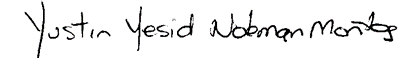 Yustin Yesid Nobman Montes